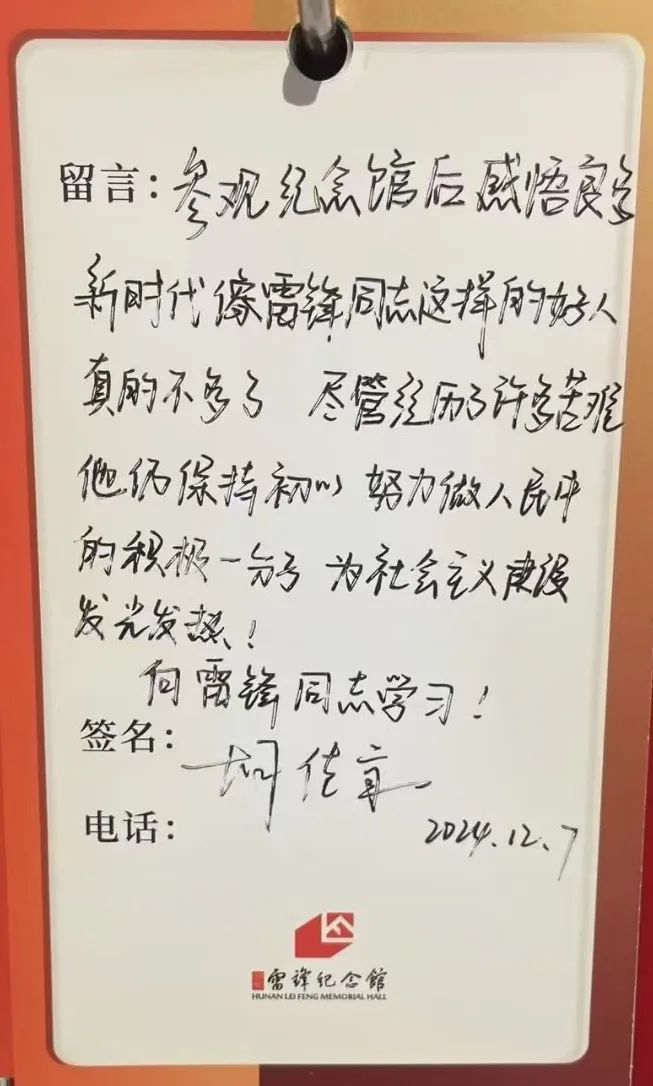 留言：参观纪念馆后感悟良多
新时代像雷锋同志这样的好人
真的不多了 尽管经历了许多苦难
他仍保持初心 努力做人民中
的积极一分子 为社会主义建设
发光发热！
向雷锋同志学习！
签名：胡佳
电话：
2024.12.7
雷锋纪念馆
HUNAN LEI FENG MEMORIAL HALL